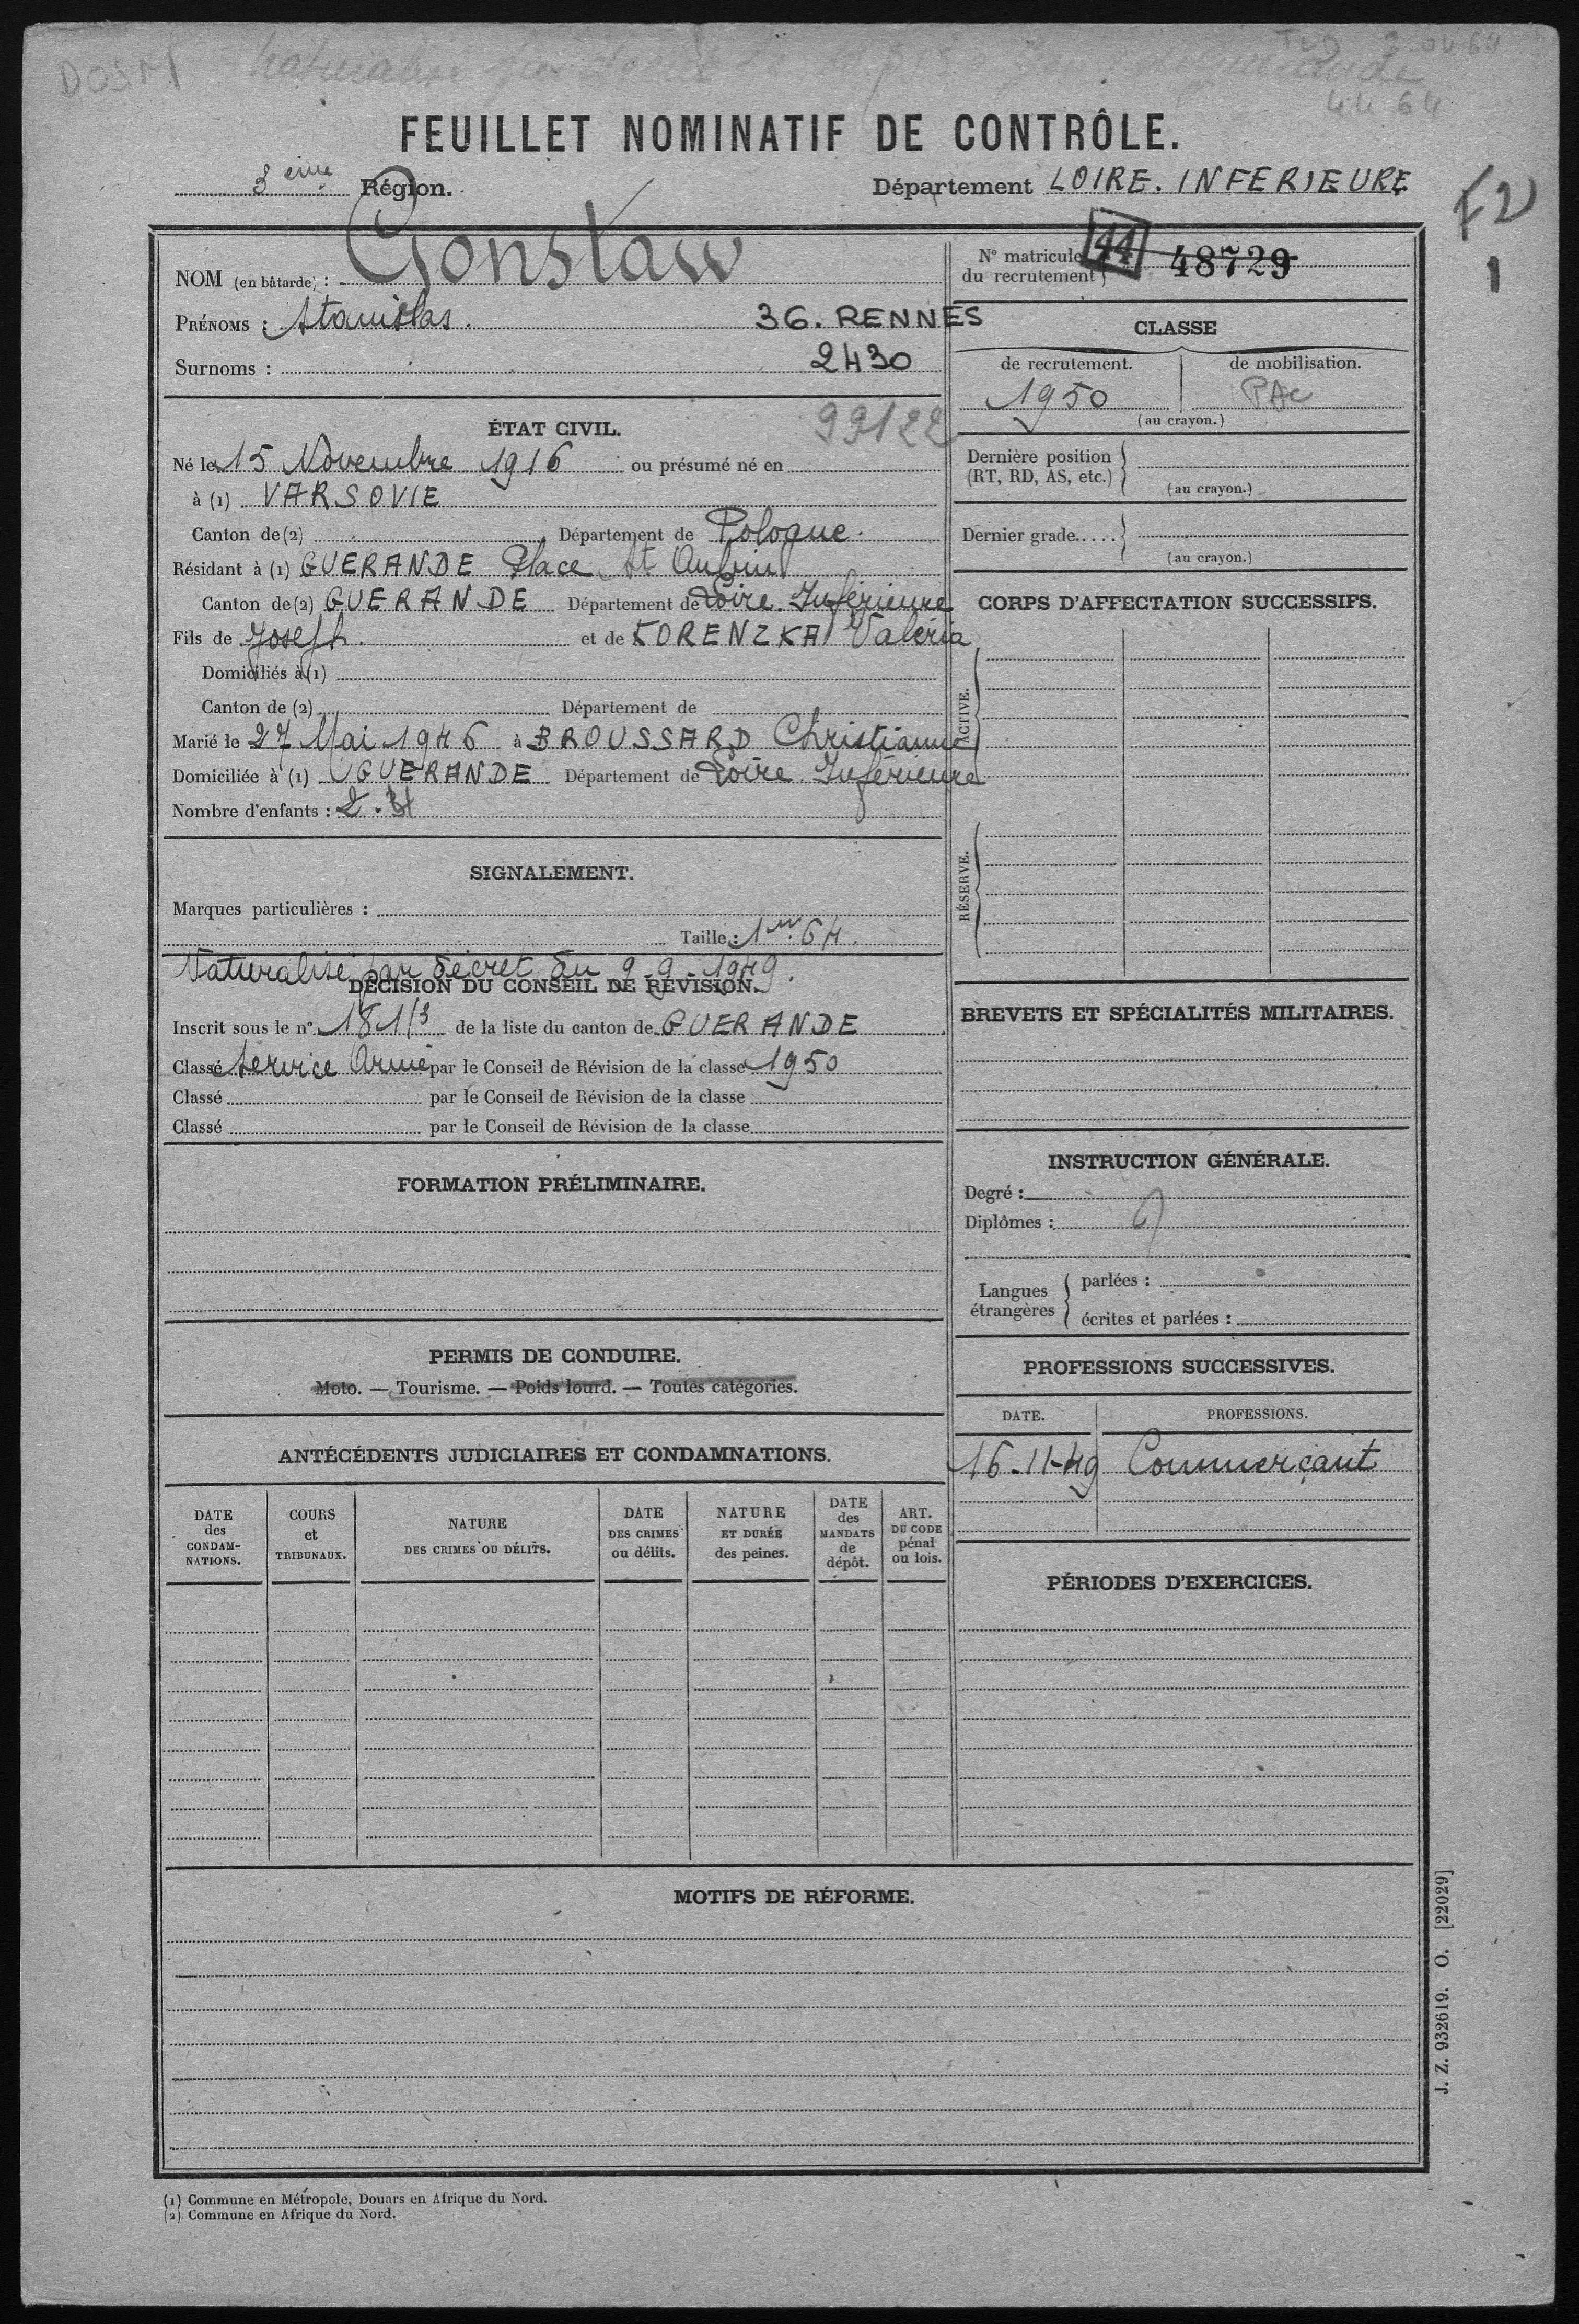 DOSM naturalisé par décret
3-04-64
44 64
FEUILLET NOMINATIF DE CONTRÔLE.
3ème Région. Département LOIRE. INFERIEURE
F2
1
NOM (en bâtarde) : Gonstaw
PRÉNOMS : Stanislas. 36. RENNES
Surnoms : 2430
N° matricule du recrutement 44 48729
CLASSE
de recrutement. de mobilisation.
1950 PAC
(au crayon.)
99122
ÉTAT CIVIL.
Né le 15 Novembre 1916 ou présumé né en
à (1) VARSOVIE
Canton de (2) Département de Pologne.
Résidant à (1) GUERANDE Place St Aubin
Canton de (2) GUERANDE Département de Loire Inférieure
Fils de Joseph. et de KORENZKA Valéria
Domiciliés à (1)
Canton de (2) Département de
Marié le 27 Mai 1946 à BROUSSARD Christianne
Domiciliée à (1) GUERANDE Département de Loire Inférieure
Nombre d'enfants : 2.
Dernière position (RT, RD, AS, etc.)
(au crayon.)
Dernier grade.....
(au crayon.)
CORPS D'AFFECTATION SUCCESSIFS.
ACTIVE.
RÉSERVE.
SIGNALEMENT.
Marques particulières :
Taille : 1m 64.
Naturalisé par décret du 9.9.1949.
DÉCISION DU CONSEIL DE RÉVISION.
Inscrit sous le n° 181/3 de la liste du canton de GUERANDE
Classé Service Armé par le Conseil de Révision de la classe 1950
Classé par le Conseil de Révision de la classe
Classé par le Conseil de Révision de la classe
BREVETS ET SPÉCIALITÉS MILITAIRES.
FORMATION PRÉLIMINAIRE.
INSTRUCTION GÉNÉRALE.
Degré :
Diplômes :
Langues étrangères
parlées :
écrites et parlées :
PERMIS DE CONDUIRE.
Moto. — Tourisme. — Poids lourd. — Toutes catégories.
PROFESSIONS SUCCESSIVES.
DATE. PROFESSIONS.
16-11-49 Commerçant
ANTÉCÉDENTS JUDICIAIRES ET CONDAMNATIONS.
DATE des CONDAMNATIONS.
COURS et TRIBUNAUX.
NATURE DES CRIMES OU DÉLITS.
DATE DES CRIMES ou délits.
NATURE ET DURÉE des peines.
DATE des MANDATS de dépôt.
ART. DU CODE pénal ou lois.
PÉRIODES D'EXERCICES.
MOTIFS DE RÉFORME.
J. Z. 932619. O. [22029]
(1) Commune en Métropole, Douars en Afrique du Nord.
(2) Commune en Afrique du Nord.